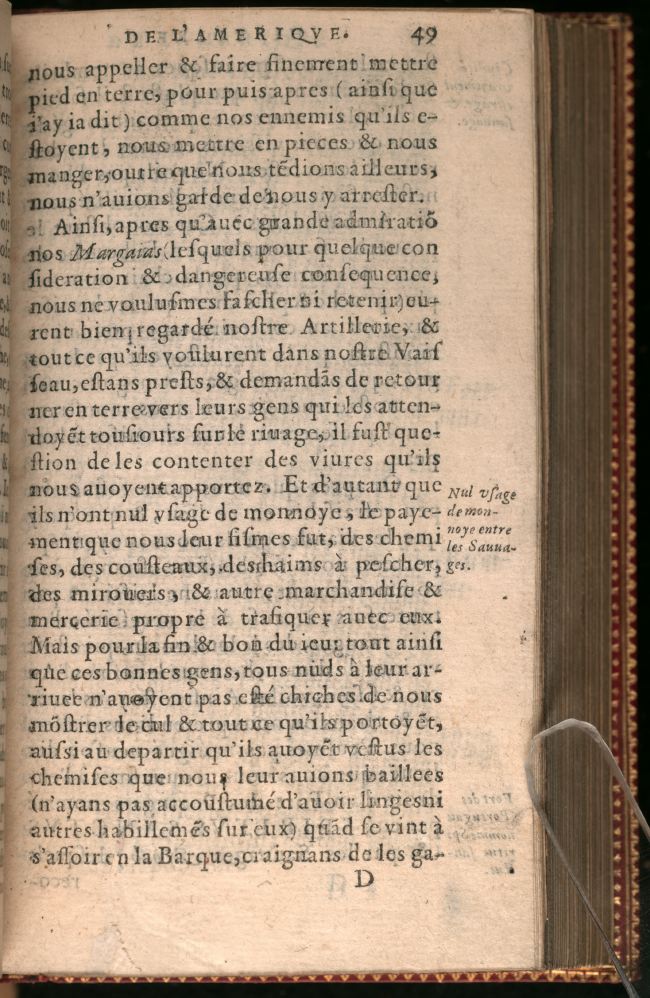 DE L'AMERIQVE. 49
nous appeller & faire finement mettre
pied en terre, pour puis apres ( ainſi que
i'ay ia dit ) comme nos ennemis qu'ils e-
ſtoyent, nous mettre en pieces & nous
manger, outre que nous tẽdions ailleurs,
nous n'auions garde de nous y arreſter.
Ainſi, apres qu'auec grande admiratiõ
nos Margaias (leſquels pour quelque con
ſideration & dangereuſe conſequence,
nous ne vouluſmes faſcher ni retenir) eu-
rent bien regardé noſtre Artillerie, &
tout ce qu'ils voulurent dans noſtre Vaiſ
ſeau, eſtans preſts, & demandãs de retour
ner en terre vers leurs gens qui les atten-
doyẽt touſiours ſur le riuage, il fuſt que-
ſtion de les contenter des viures qu'ils
nous auoyent apportez. Et d'autant que
ils n'ont nul vſage de monnoye, le paye-
ment que nous leur fiſmes fut, des chemi
ſes, des couſteaux, des haims à peſcher,
des mirouers, & autre marchandiſe &
mercerie propre à trafiquer auec eux.
Mais pour la fin & bon du ieu, tout ainſi
que ces bonnes gens, tous nuds à leur ar-
riuee n'auoyent pas eſté chiches de nous
mõſtrer le cul & tout ce qu'ils portoyẽt,
auſsi au departir qu'ils auoyẽt veſtus les
chemiſes que nous leur auions baillees
(n'ayans pas accouſtumé d'auoir linges ni
autres habillemẽs ſur eux) quãd ſe vint à
s'aſſoir en la Barque, craignans de les ga-
D
Nul vſage
de mon-
noye entre
les Sauua-
ges.